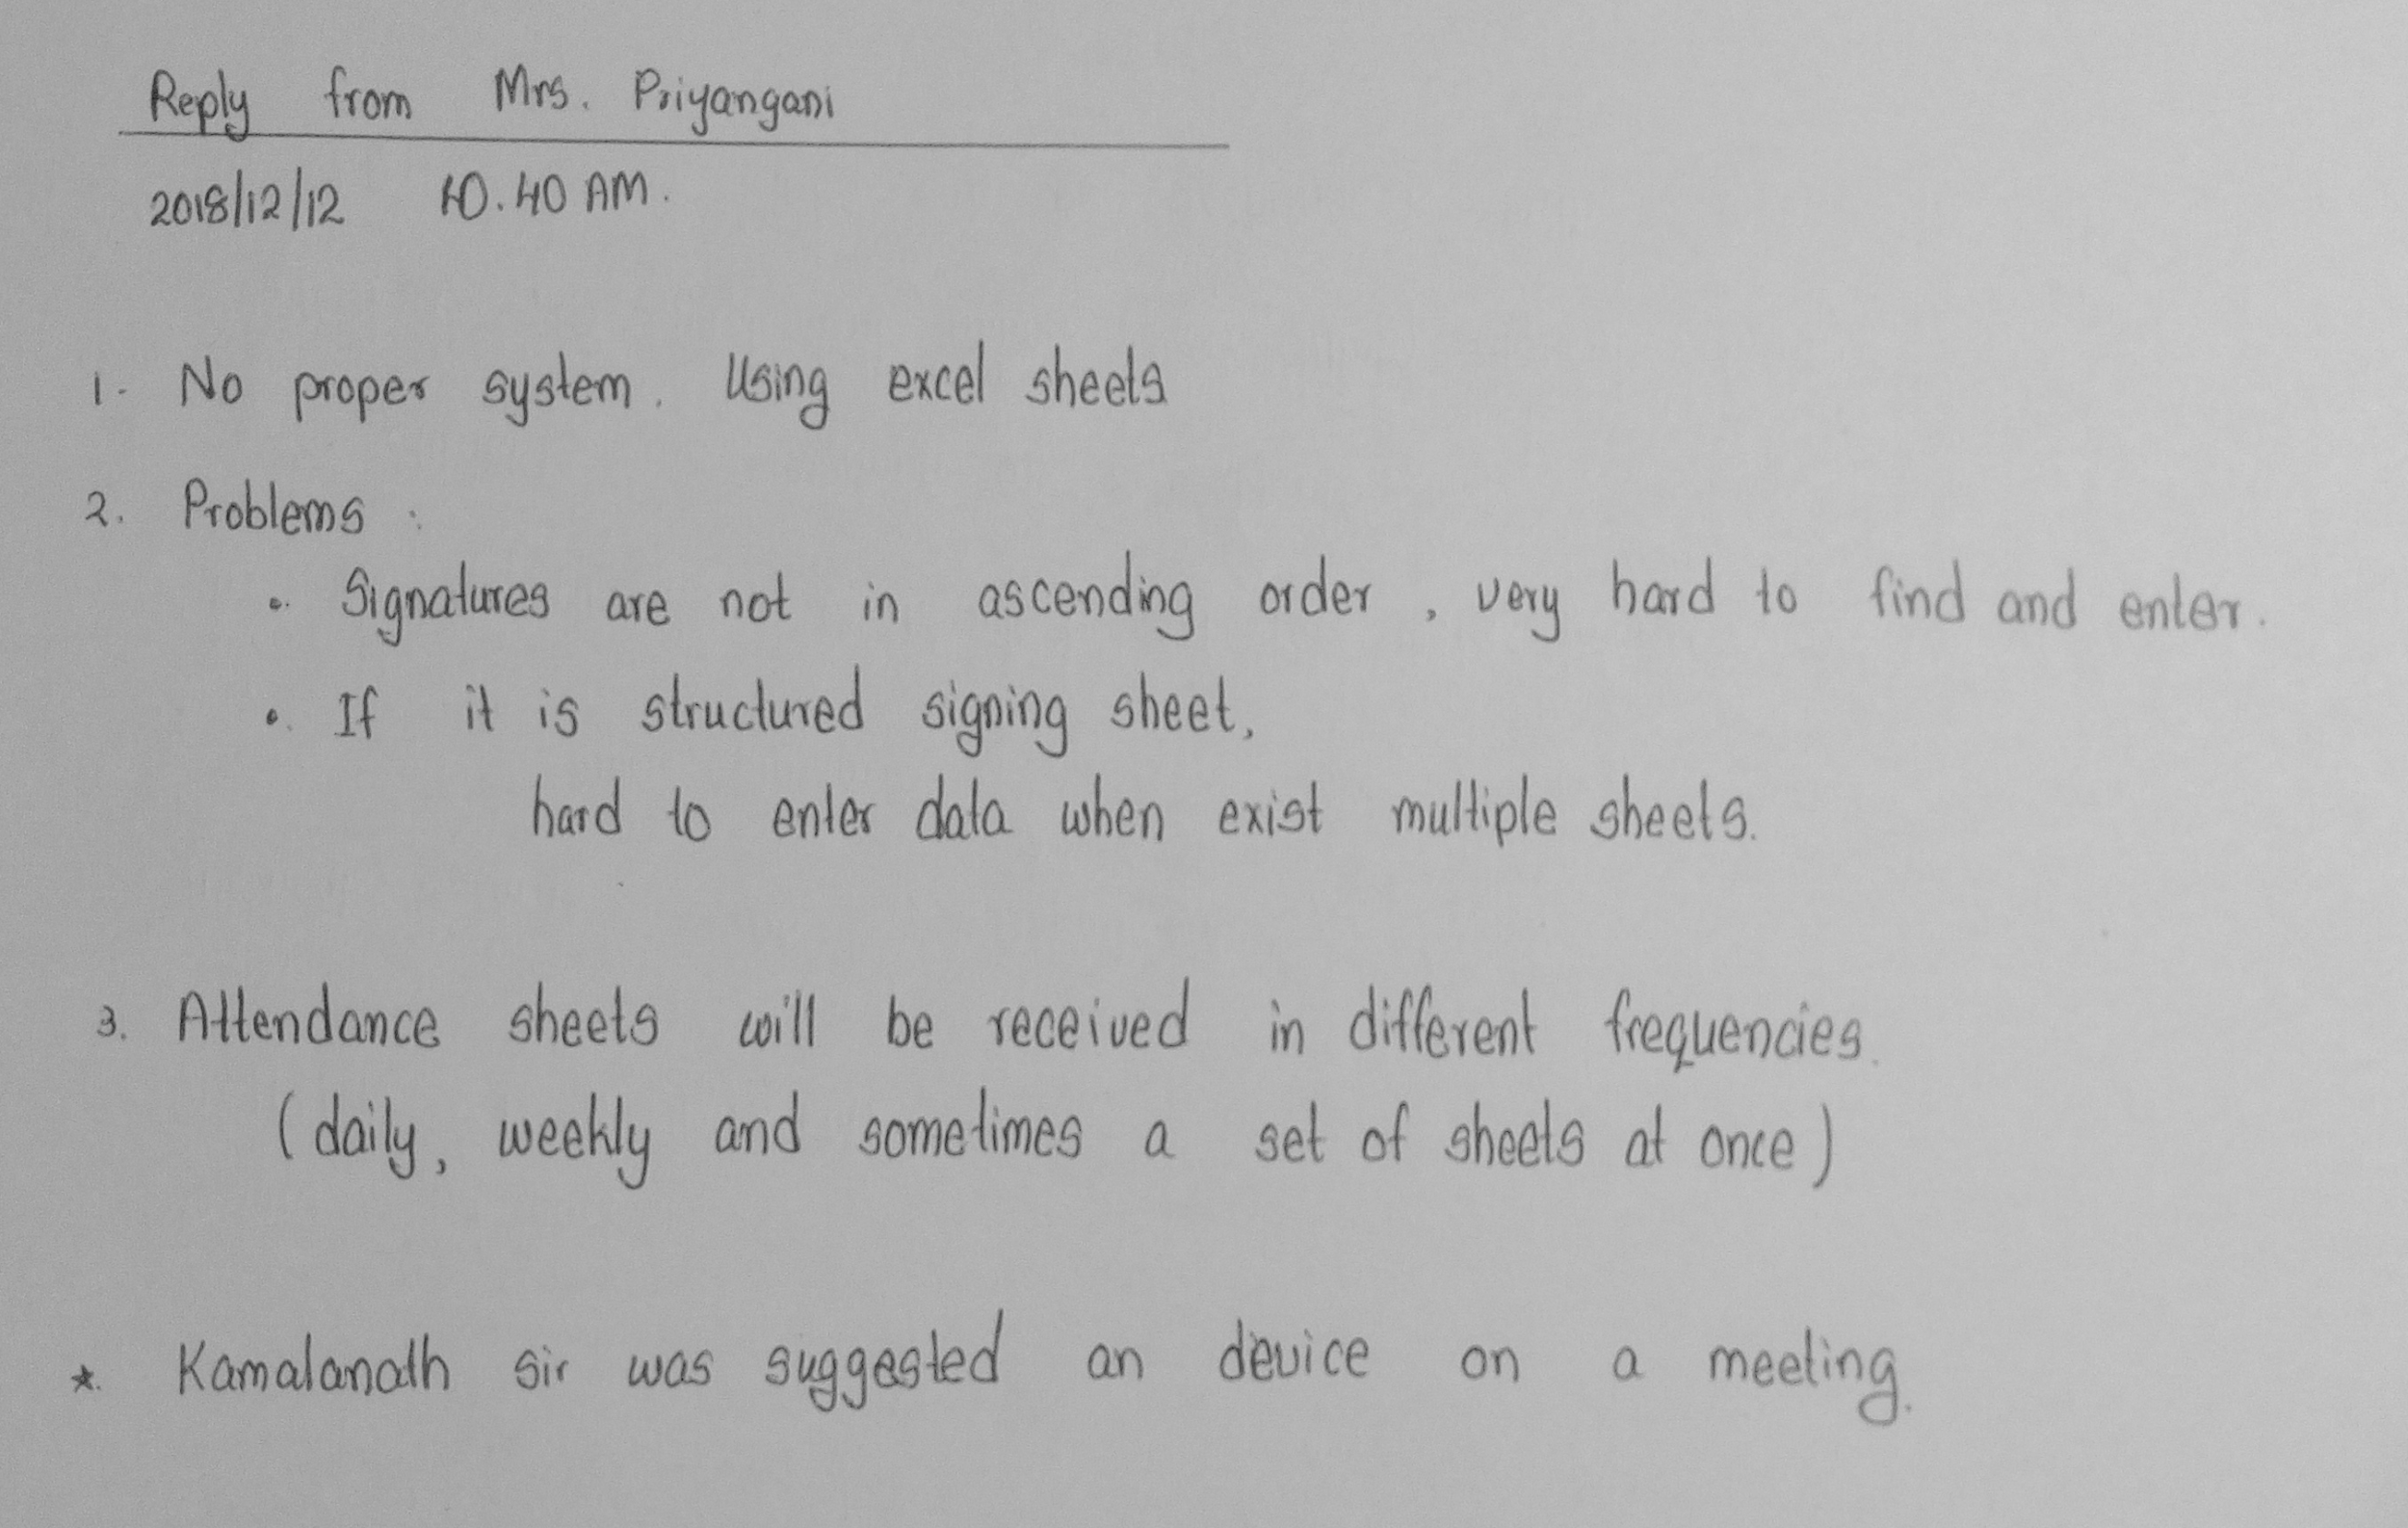 Reply from Mrs. Priyangani
2018/12/12 10.40 AM.
1. No proper system. Using excel sheets
2. Problems :
• Signatures are not in ascending order, very hard to find and enter.
• If it is structured signing sheet,
hard to enter data when exist multiple sheets.
3. Attendance sheets will be received in different frequencies.
(daily, weekly and sometimes a set of sheets at once)
* Kamalanath sir was suggested an device on a meeting.